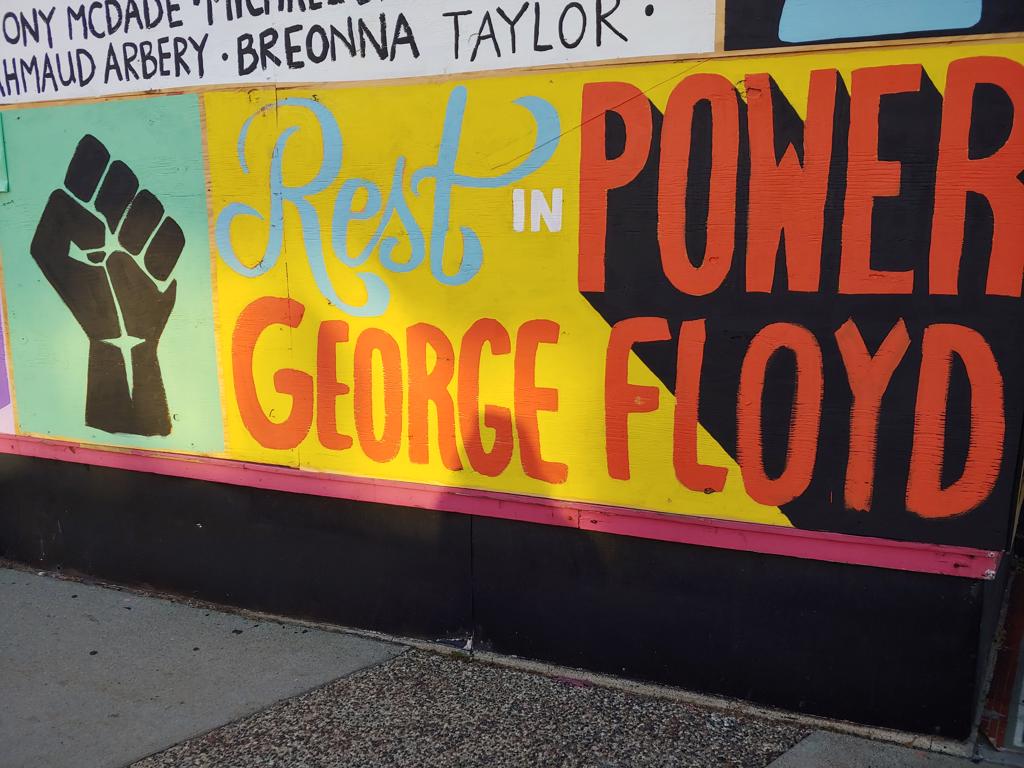 ONY MCDADE · MICHAEL
AHMAUD ARBERY · BREONNA TAYLOR ·
Rest IN POWER
GEORGE FLOYD